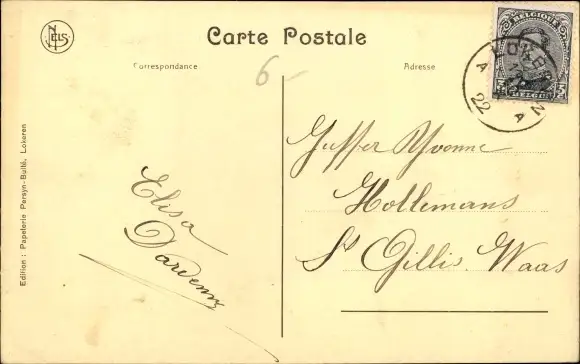 NELS
Carte Postale
Correspondance
Adresse
6-
BELGIQUE
BELGIË
LOKEREN
A A
22
Juffer Yvonne
Hollemans
St Gillis Waas
Elisa
Dardenn
Edition : Papeterie Persyn-Bulté, Lokeren